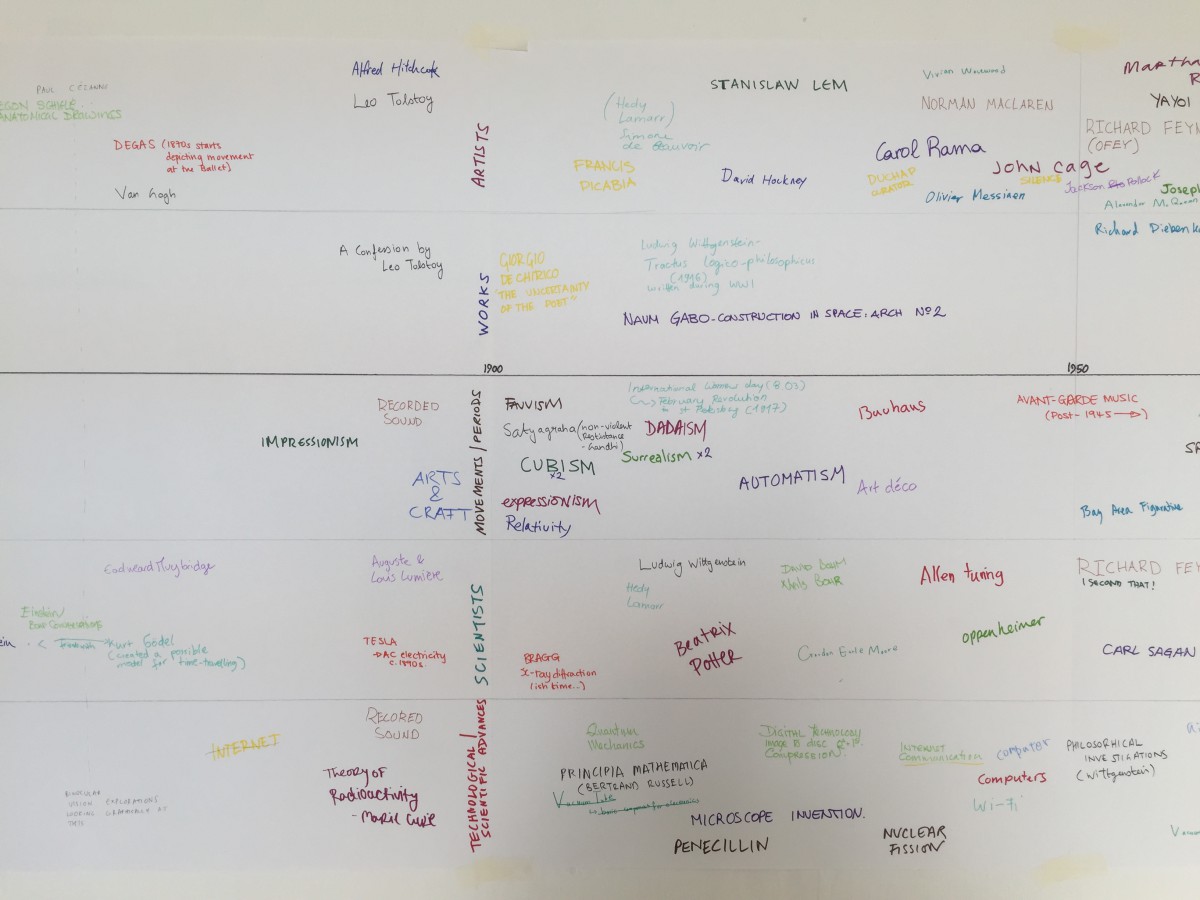 PAUL CÉZANNE
EGON SCHIELE
ANATOMICAL DRAWINGS
DEGAS (1870s starts
depicting movement
at the Ballet)
Van Gogh
Alfred Hitchcock
Leo Tolstoy
ARTISTS
(Hedy
Lamarr)
Simone
de Beauvoir
FRANCIS
PICABIA
STANISLAW LEM
David Hockney
Vivian
NORMAN MACLAREN
Carol Rama
DUCHAP
CURATOR
John Cage
SILENCE
Olivier Messiaen
Martha
R
YAYOI
RICHARD FEYN
(OFEY)
Jackson Pollock
Joseph
Alexander M. Queen
Richard Diebenk
A Confession by
Leo Tolstoy
WORKS
GIORGIO
DE CHIRICO
"THE UNCERTAINTY
OF THE POET"
Ludwig Wittgenstein-
Tractus Logico-philosophicus
(1916)
written during WWI
NAUM GABO-CONSTRUCTION IN SPACE: ARCH Nº2
1900
1950
RECORDED
SOUND
IMPRESSIONISM
ARTS
&
CRAFT
MOVEMENTS/PERIODS
FAUVISM
Satyagraha (non-violent
Resistance
-Gandhi)
CUBISM
x2
expressionism
Relativity
International Women day (8 03)
February Revolution
St Petersburg (1917)
DADAISM
Surrealism x2
AUTOMATISM
Bauhaus
Art déco
AVANT-GARDE MUSIC
(Post-1945 →)
SP
Bay Area Figurative
Eadweard Muybridge
Auguste &
Louis Lumière
Einstein
Bohr Conversations
ein
Kurt Gödel
(created a possible
model for time-travelling)
TESLA
→AC electricity
c.1890s
SCIENTISTS
BRAGG
X-ray diffraction
(ish time...)
Ludwig Wittgenstein
Hedy
Lamarr
Beatrix
Potter
DAVID BOHM
Niels BOHR
Gordon Earle Moore
Allen turing
oppenheimer
RICHARD FEY
I SECOND THAT!
CARL SAGAN
INTERNET
RECORED
SOUND
Theory of
Radioactivity
- Marie Curie
BINOCULAR
VISION EXPLORATIONS
TECHNOLOGICAL/
SCIENTIFIC ADVANCES
Quantum
Mechanics
PRINCIPIA MATHEMATICA
(BERTRAND RUSSELL)
Vacuum Tube
MICROSCOPE INVENTION.
PENECILLIN
DIGITAL TECHNOLOGY
COMPRESSION.
INTERNET
COMMUNICATION
computer
computers
Wi-Fi
NUCLEAR
FISSION
PHILOSORHICAL
INVESTIGATIONS
(Wittgenstein)